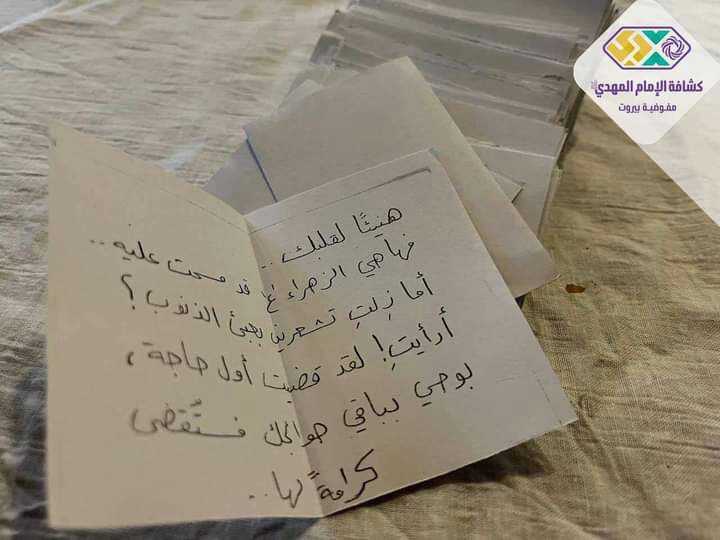 كشافة الإمام المهدي
مفوضية بيروت
هنيئًا لقلبك..
فها هي الزهراء ع قد مسحت عليه..
أما زلتِ تشعرين بعبئ الذنوب؟
أرأيتِ! لقد قضيت أول حاجة،
بوحي بباقي حوائجك فستُقضى
كرامةً لها..